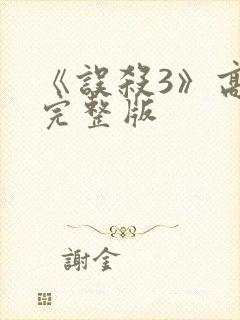 《誤殺3》高
完整版
謝金